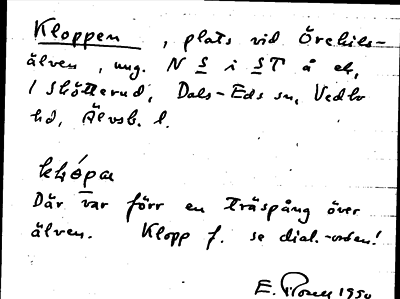 Kloppen, plats vid Örekils-
älven, ung. N S i ST å ek,
1 Skötterud, Dals-Eds sn, Vedbo
hd, Älvsb. l.
klópa
Där var förr en träspång över
älven. Klopp f. se dial.-orden!
E. 1950